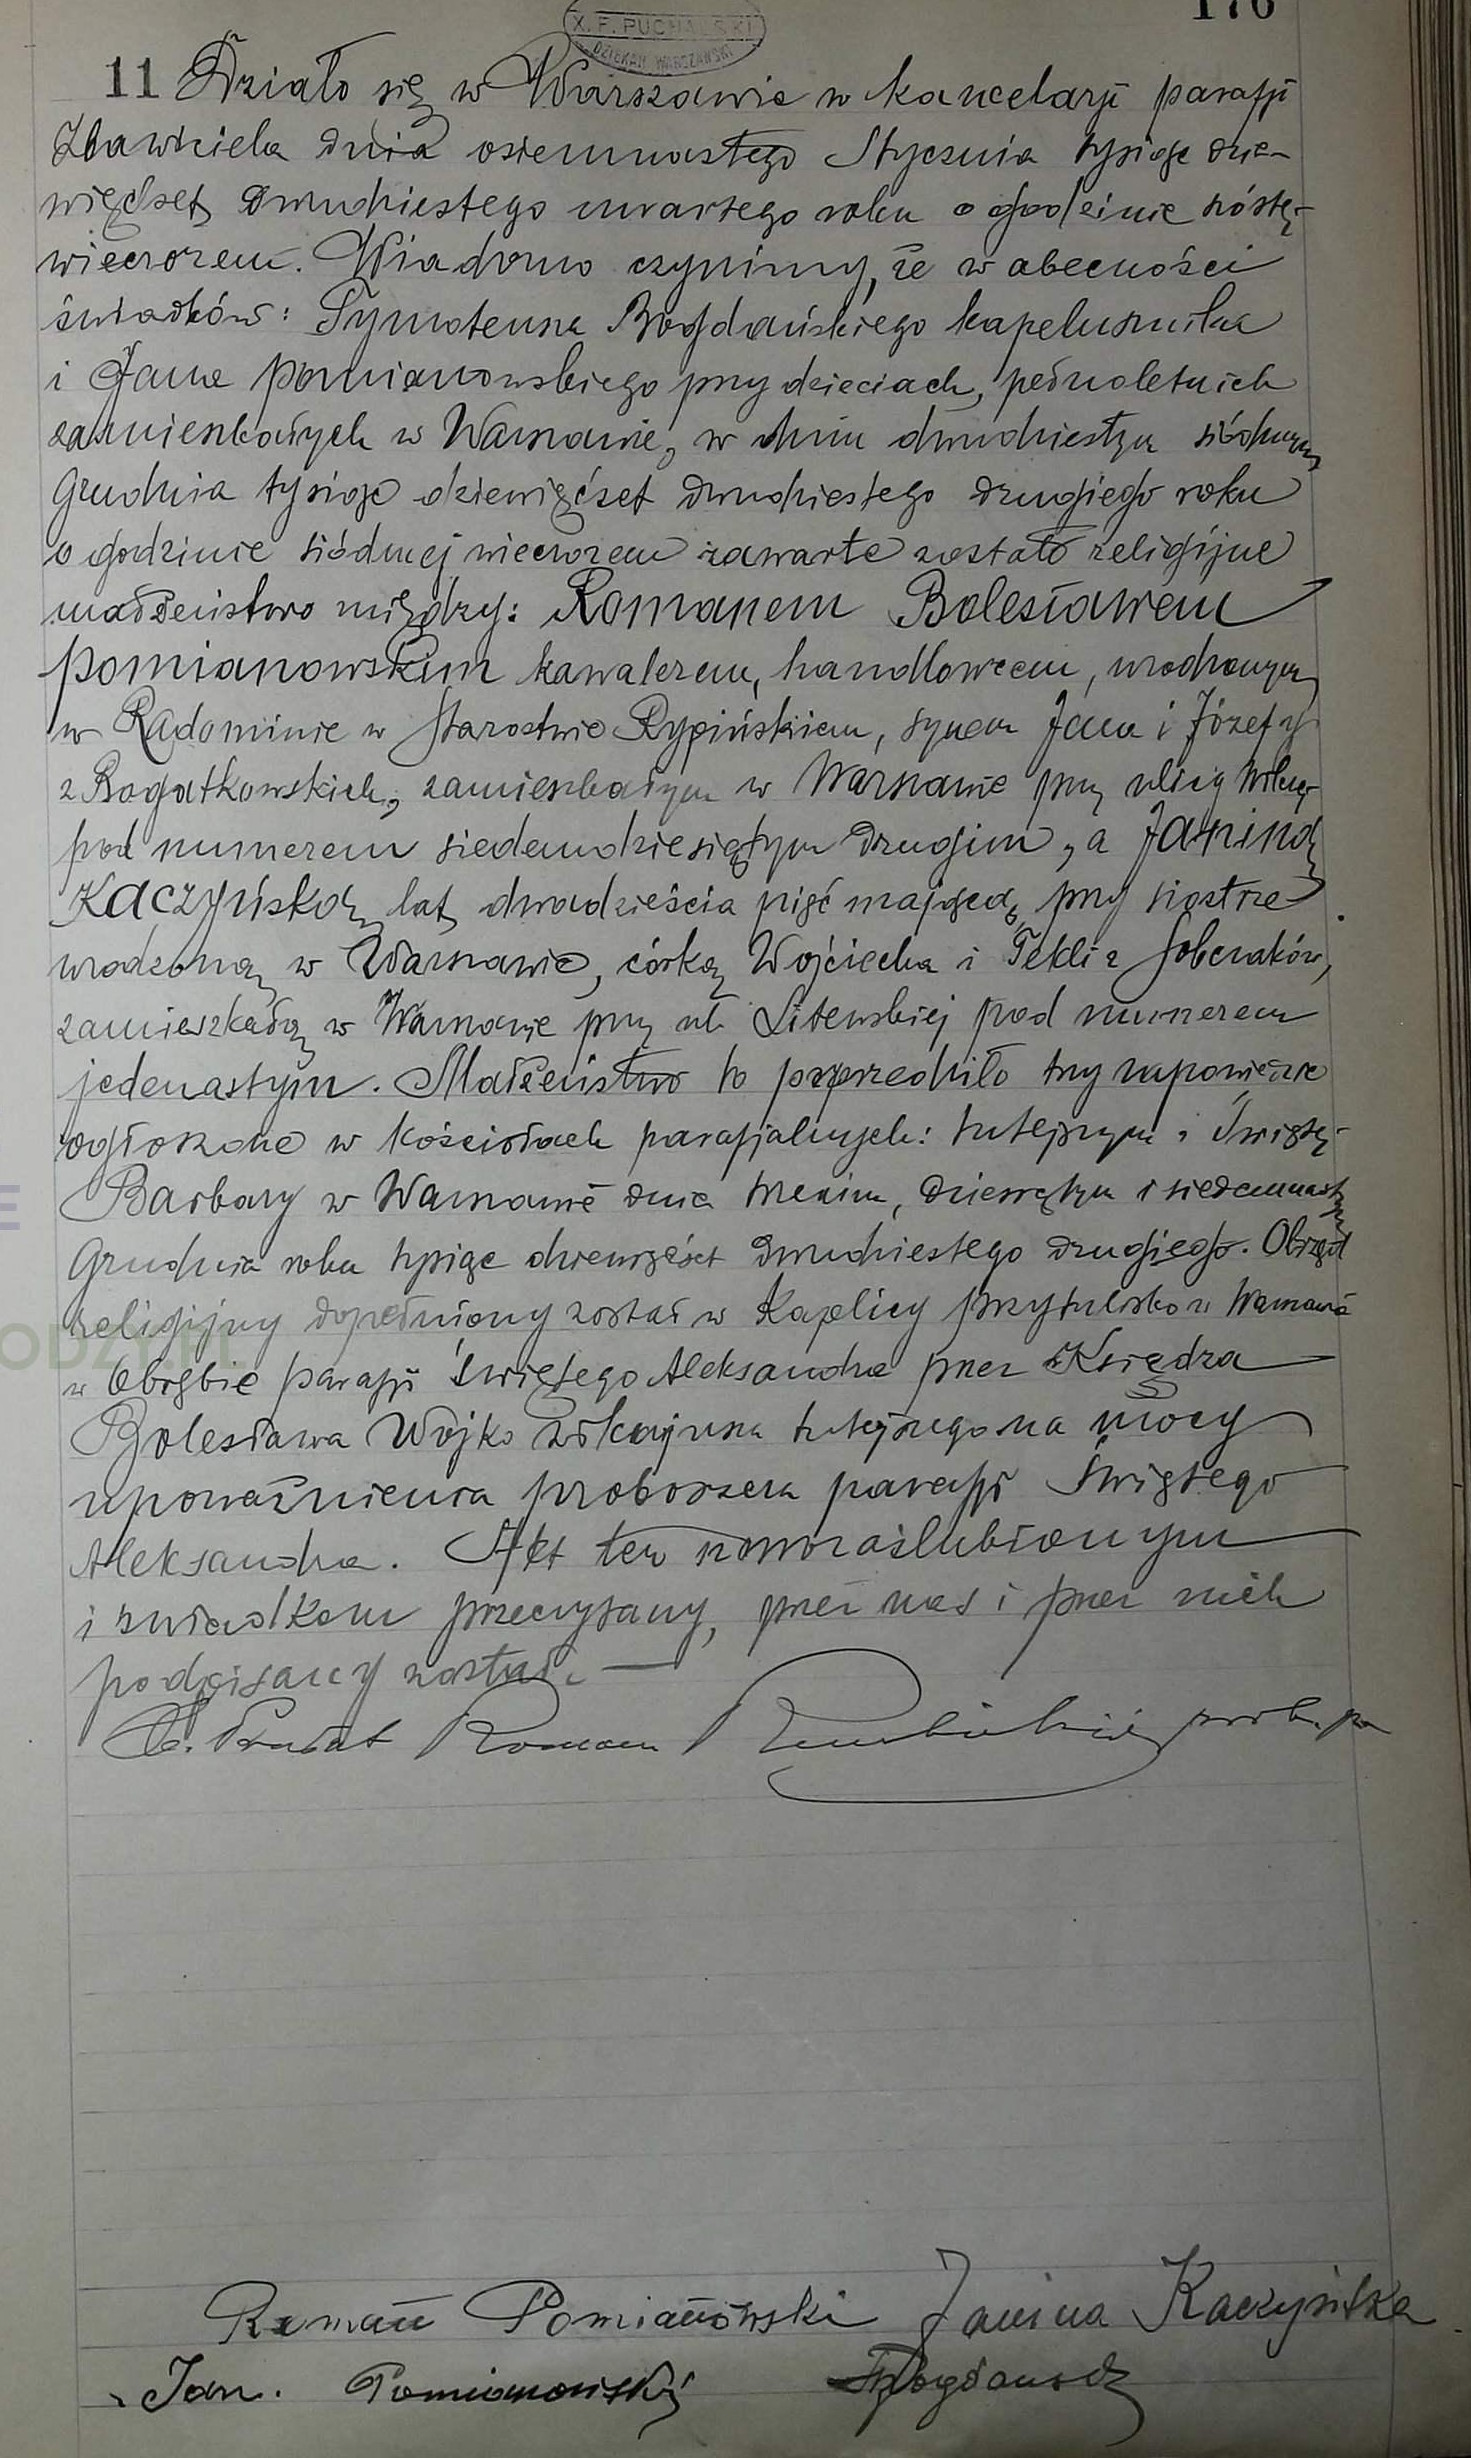 176
X. F. PUCHALSKI
DZIEKAN WARSZAWSKI
11 Działo się w Warszawie w kancelarji parafji
Zbawiciela dnia osiemnastego Stycznia tysiąc dzie-
więćset dwudziestego czwartego roku o godzinie szóstej
wieczorem. Wiadomo czynimy, że w obecności
świadków: Tymoteusza Bogdańskiego kapelusznika
i Jana Pomianowskiego przy dzieciach, pełnoletnich
zamieszkałych w Warszawie, w dniu dwudziestym siódmym
Grudnia tysiąc dziewięćset dwudziestego drugiego roku
o godzinie siódmej wieczorem zawarte zostało religijne
małżeństwo między: Romanem Bolesławem
Pomianowskim kawalerem, handlowcem, urodzonym
w Radominie w Starostwie Rypińskiem, synem Jana i Józefy
z Rogatkowskich, zamieszkałym w Warszawie przy ulicy Wilczej
pod numerem siedemdziesiątym drugim, a Janiną
Kaczyńską lat dwadzieścia pięć mającą, przy siostrze
urodzoną w Warszawie, córką Wojciecha i Tekli z Sobczaków,
zamieszkałą w Warszawie przy ul. Litewskiej pod numerem
jedenastym. Małżeństwo to poprzedziło trzy zapowiedzie
ogłoszone w kościołach parafjalnych: tutejszym i Świętej
Barbary w Warszawie dnia trzecim, dziesiątym i siedemnastym
Grudnia roku tysiąc dziewięćset dwudziestego drugiego. Obrzęd
religijny dopełniony został w Kaplicy przytulisko w Warszawie
w obrębie parafji Świętego Aleksandra przez Księdza
Bolesława Wójko wikarjusza tutejszego na mocy
upoważnienia proboszcza parafji Świętego
Aleksandra. Akt ten nowozaślubionym
i świadkom przeczytany, przez nas i przez nich
podpisany został. —
X. Prałat Roman Rembieliński prob. pa
Roman Pomianowski Janina Kaczyńska
Jan. Pomianowski TBogdański